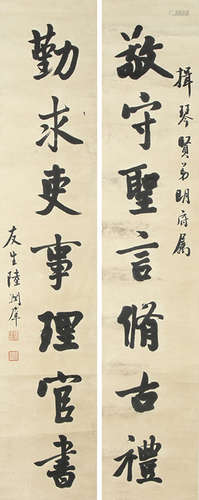 揖琴賢弟明府屬
敬守聖言脩古禮
勤求吏事理官書
友生陸潤庠